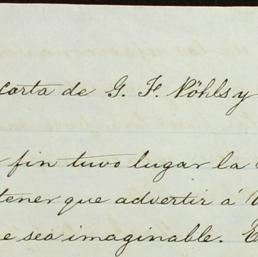 carta de G. F. Pöhls y
fin tuvo lugar la
tener que advertir á
e sea imaginable. E